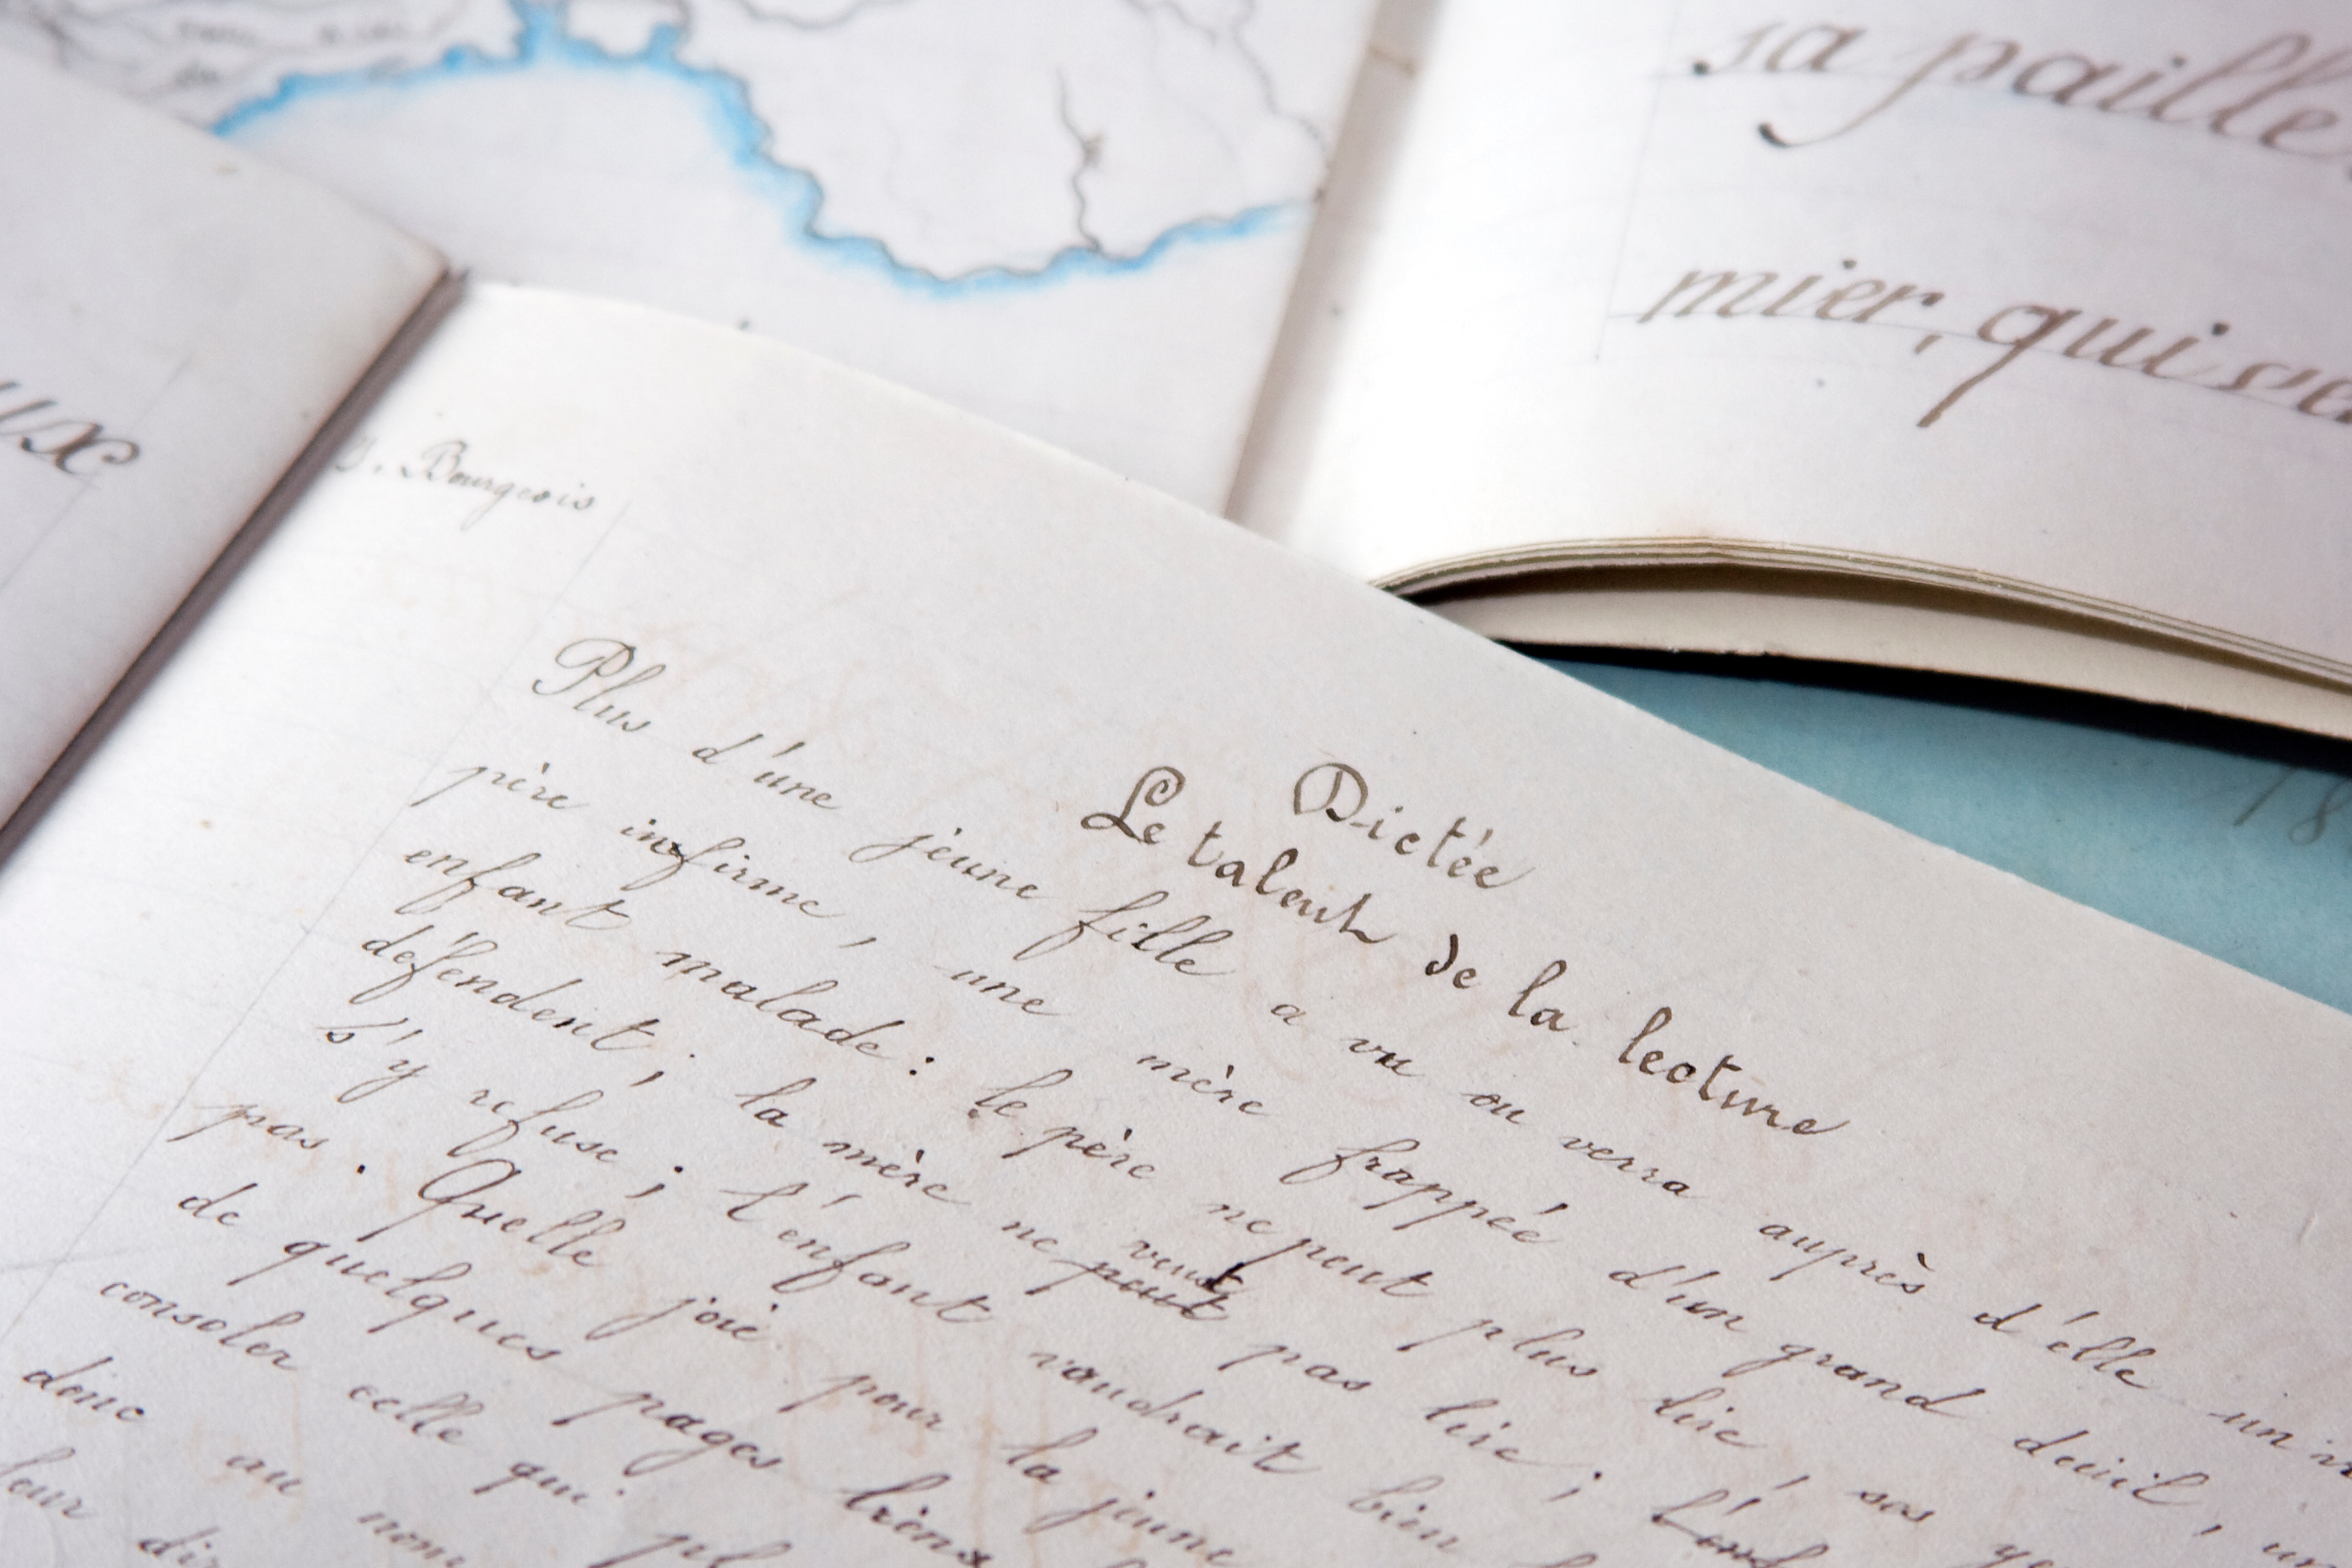 sa paille
mier, qui se
ux
J. Bourgeois
Dictée
Le talent de la lecture
Plus d'une jeune fille a vu ou verra auprès d'elle un
père infirme, une mère frappée d'un grand deuil,
enfant malade : le père ne peut plus lire, ses
défendent ; la mère ne peut veut pas lire ; l'enf
s'y refuse ; l'enfant voudrait bien
pas. Quelle joie pour la jeune
de quelques pages
consoler celle qui
donc au nom
leur dir
18